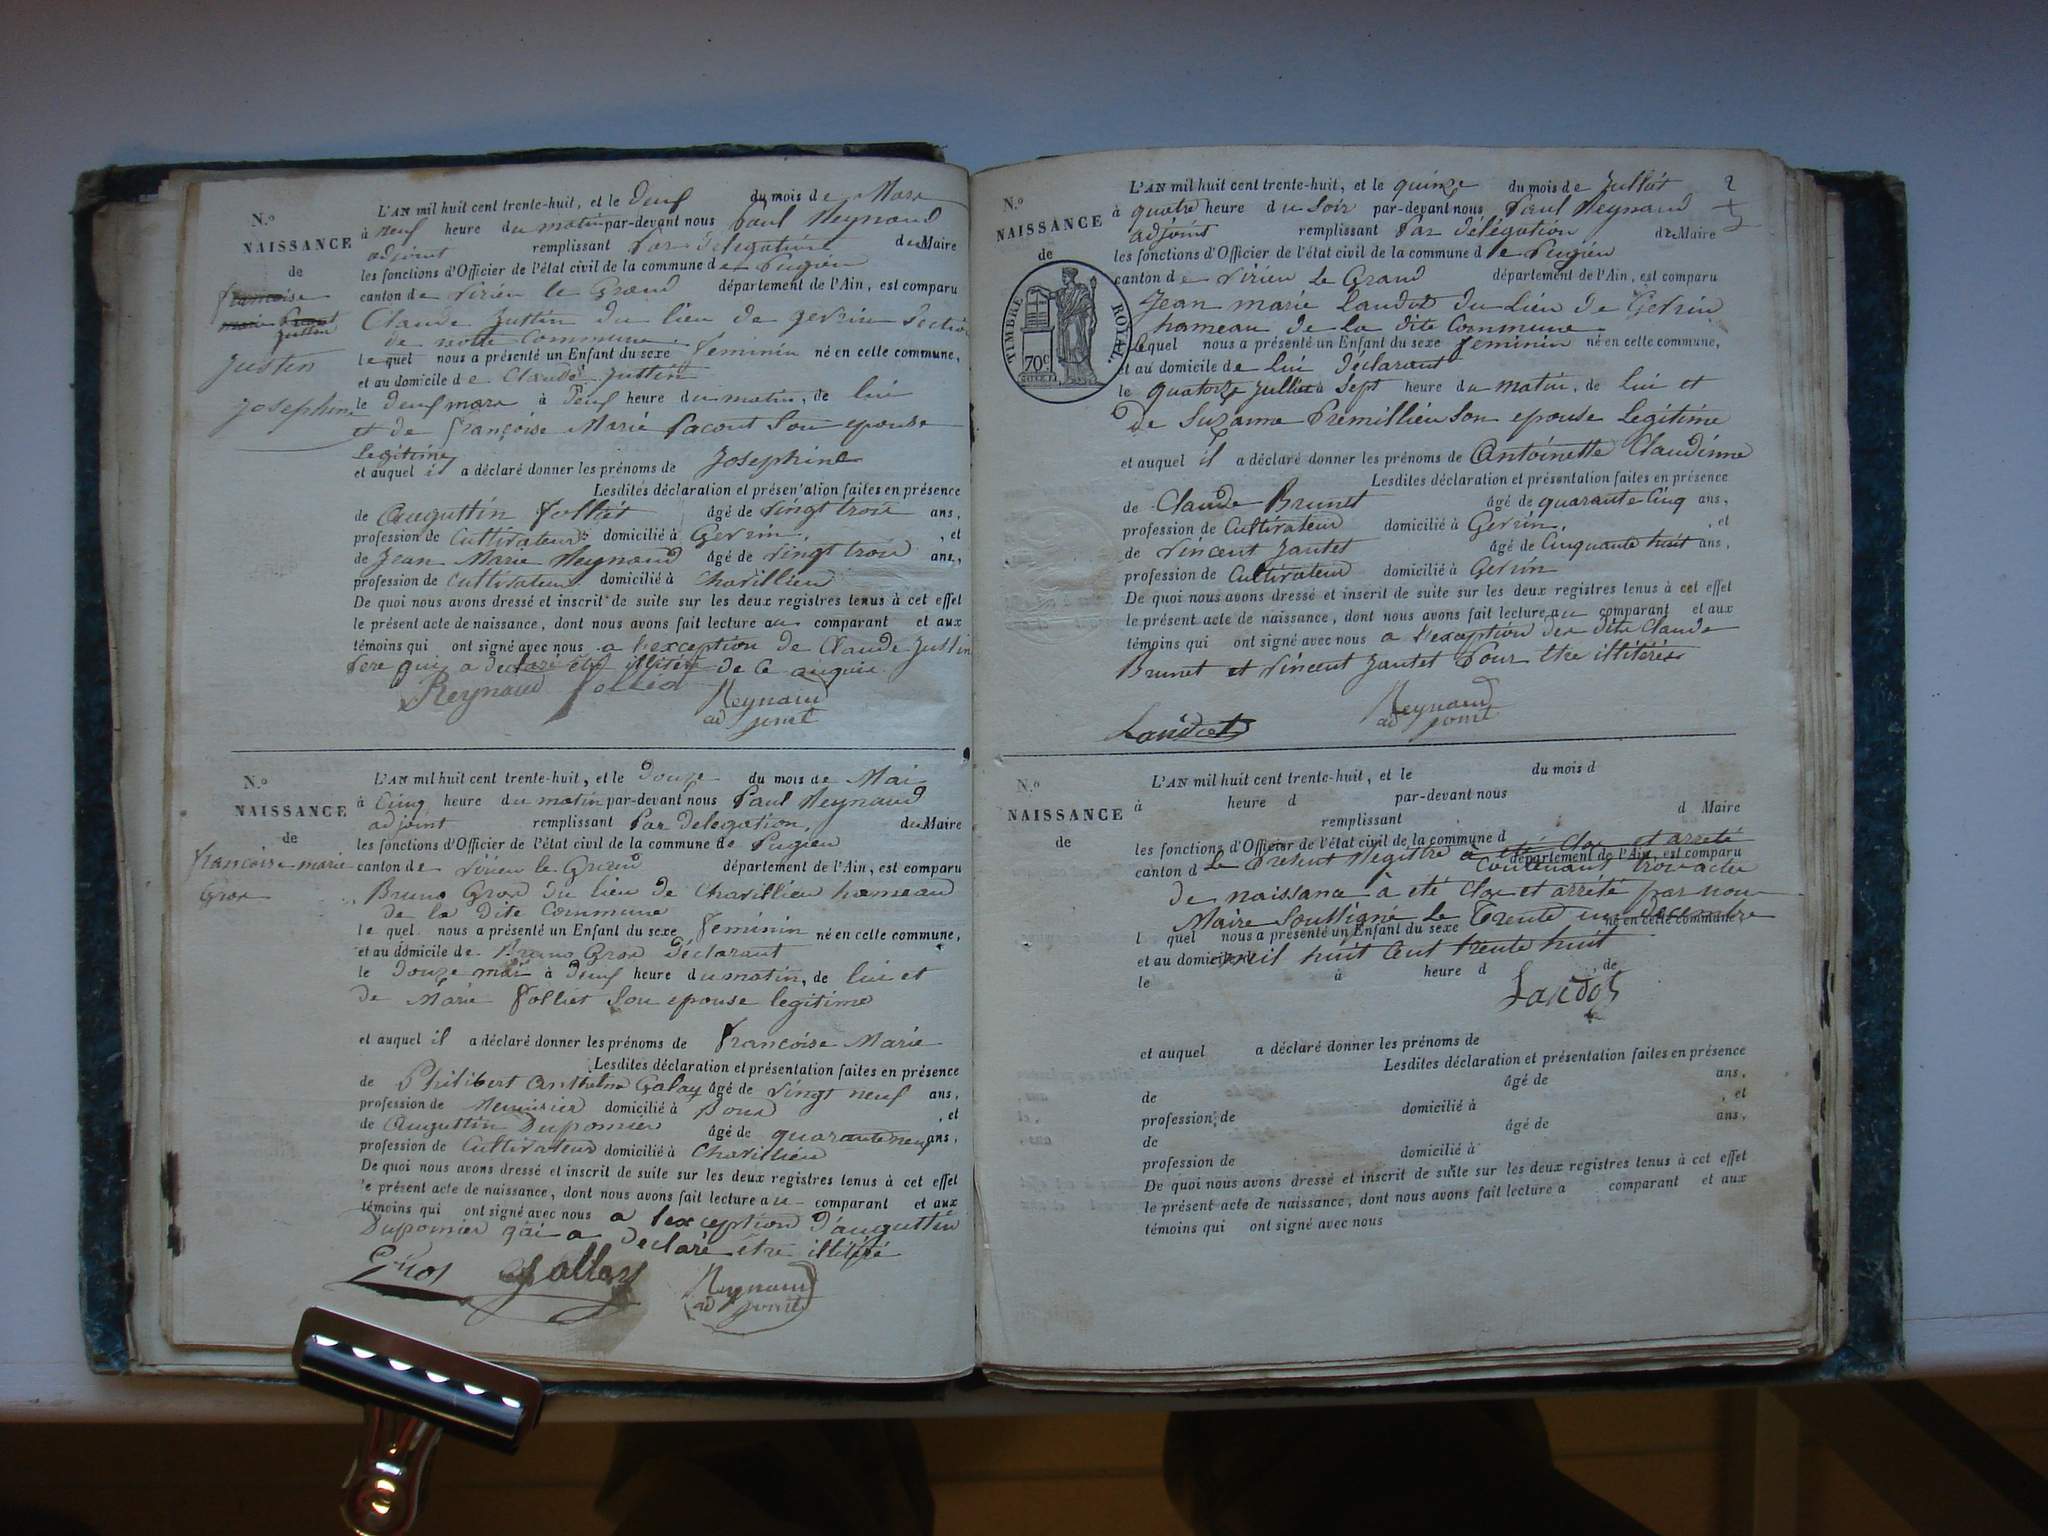 N.º
NAISSANCE
de
Justin
Josephine
L'AN mil huit cent trente-huit, et le deuf du mois de Mars
à neuf heure du matin par-devant nous Paul Reynaud
adjoint remplissant Par délégation du Maire
les fonctions d'Officier de l'état civil de la commune de Pugieu
canton de Virieu le Grand département de l'Ain, est comparu
Claude Justin du lieu de Gevrin Section
de notte Commune
lequel nous a présenté un Enfant du sexe feminin né en cette commune,
et au domicile de Claude Justin
le deuf mars à deuf heure du matin, de lui
et de françoise Marie Pacout Son epouse
Legitime
et auquel il a déclaré donner les prénoms de Josephine
Lesdites déclaration et présentation faites en présence
de Auguttin Folliet âgé de vingt trois ans,
profession de Cultivateur domicilié à Gevrin, et
de Jean Marie Reynaud âgé de vingt trois ans,
profession de Cultivateur domicilié à Chavillieu
De quoi nous avons dressé et inscrit de suite sur les deux registres tenus à cet effet
le présent acte de naissance, dont nous avons fait lecture au comparant et aux
témoins qui ont signé avec nous a l'exception de Claude Justin
Pere qui a declaré être illitéré de ce enquis
Reynaud folliet Reynaud
adjoint
N.º
NAISSANCE
de
francoise marie
Gros
L'AN mil huit cent trente-huit, et le douze du mois de Mai
à Cinq heure du matin par-devant nous Paul Reynaud
adjoint remplissant Par delegation, du Maire
les fonctions d'Officier de l'état civil de la commune de Pugieu
canton de Virieu le Grand département de l'Ain, est comparu
Bruno Gros du lieu de Chavillieu hameau
de la dite Commune
lequel nous a présenté un Enfant du sexe feminin né en cette commune,
et au domicile de Bruno Gros déclarant
le douze mai à deuf heure du matin, de lui et
de Marie Folliet Son epouse legitime
et auquel il a déclaré donner les prénoms de francoise Marie
Lesdites déclaration et présentation faites en présence
de Philibert Anthelme Galay âgé de vingt neuf ans,
profession de Menuisier domicilié à Pond, et
de Auguttin Dupomier âgé de quarante neuf ans,
profession de Cultivateur domicilié à Chavillieu
De quoi nous avons dressé et inscrit de suite sur les deux registres tenus à cet effet
le présent acte de naissance, dont nous avons fait lecture au comparant et aux
témoins qui ont signé avec nous a l'exception d'auguttin
Dupomier qui a declaré être illitéré
Gros Gallay Reynaud
adjoint
2
N.º
NAISSANCE
de
TIMBRE ROYAL
70c
L'AN mil huit cent trente-huit, et le quinze du mois de Julliet
à quatre heure du Soir par-devant nous Paul Reynaud
adjoint remplissant Par délégation du Maire
les fonctions d'Officier de l'état civil de la commune de Pugieu
canton de Virieu Le Grand département de l'Ain, est comparu
Jean marie Landot du Lieu de Gevrin
hameau de la dite Commune
lequel nous a présenté un Enfant du sexe feminin né en cette commune,
et au domicile de lui déclarant
le quatorze Julliet à Sept heure du matin, de lui et
de Suzanne Premillieu Son epouse Legitime
et auquel il a déclaré donner les prénoms de Antoinette Claudinne
Lesdites déclaration et présentation faites en présence
de Claude Brunet âgé de quarante Cinq ans,
profession de Cultivateur domicilié à Gevrin, et
de Vincent Jantet âgé de Cinquante huit ans,
profession de Cultivateur domicilié à Gevrin
De quoi nous avons dressé et inscrit de suite sur les deux registres tenus à cet effet
le présent acte de naissance, dont nous avons fait lecture au comparant et aux
témoins qui ont signé avec nous a l'exception des dits Claude
Brunet et Vincent Jantet Pour être illitérés
Landot Reynaud
adjoint
N.º
NAISSANCE
de
L'AN mil huit cent trente-huit, et le du mois d
à heure d par-devant nous
remplissant d Maire
les fonctions d'Officier de l'état civil de la commune d
Le Présent Registre a été Clos et arreté
canton d département de l'Ain, est comparu
Contenant trois actes
de naissance à été Clos et arrêté par nous
Maire Soussigné Le Trente un decembre
l quel nous a présenté un Enfant du sexe né en cette commune,
et au domicile d
mil huit Cent trente huit
le à heure d de
Landot
et auquel a déclaré donner les prénoms de
Lesdites déclaration et présentation faites en présence
de âgé de ans,
profession de domicilié à , et
de âgé de ans,
profession de domicilié à
De quoi nous avons dressé et inscrit de suite sur les deux registres tenus à cet effet
le présent acte de naissance, dont nous avons fait lecture a comparant et aux
témoins qui ont signé avec nous